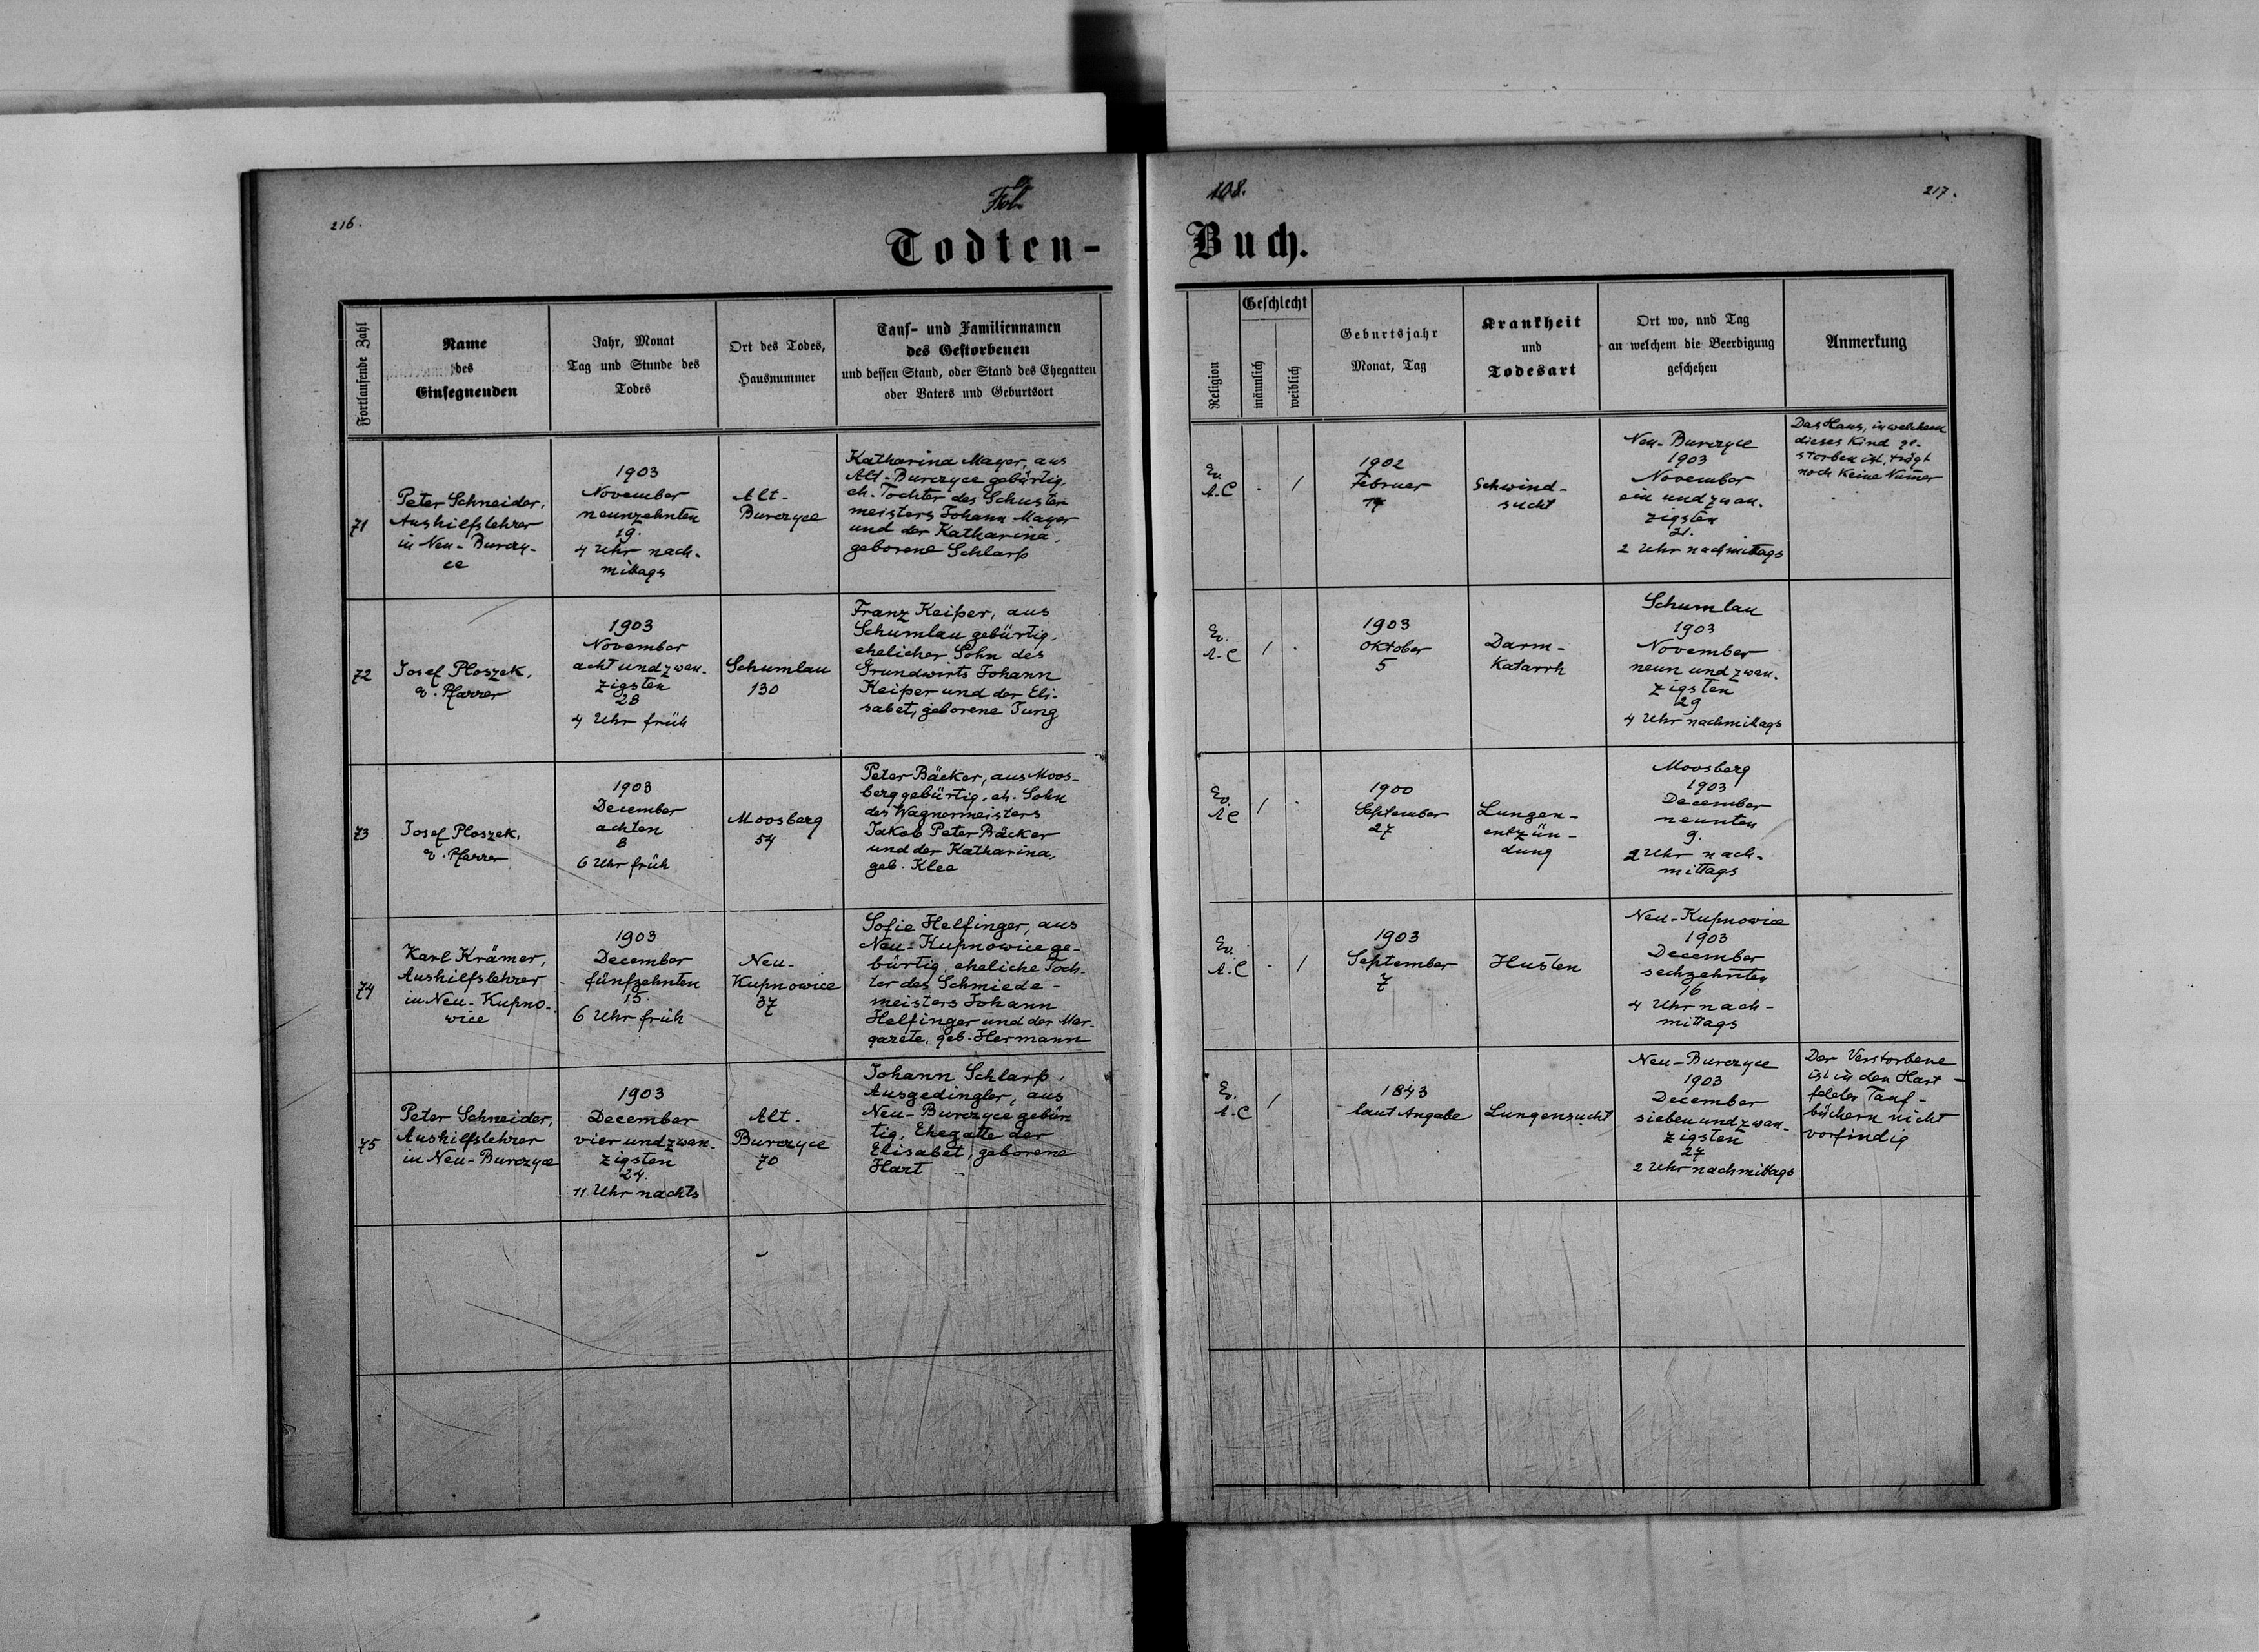 216.
Fol.
108.
217.
Todten-
Buch.
Fortlaufende Zahl
Name
des
Einsegnenden
Jahr, Monat
Tag und Stunde des
Todes
Ort des Todes,
Hausnummer
Tauf- und Familiennamen
des Gestorbenen
und dessen Stand, oder Stand des Ehegatten
oder Vaters und Geburtsort
Religion
Geschlecht
männlich
weiblich
Geburtsjahr
Monat, Tag
Krankheit
und
Todesart
Ort wo, und Tag
an welchem die Beerdigung
geschehen
Anmerkung
71
Peter Schneider,
Aushilfslehrer
in Neu-Burczy-
ce
1903
November
neunzehnten
19.
4 Uhr nach-
mittags
Alt-
Burczyce
Katharina Mayer, aus
Alt-Burczyce gebürtig,
eh. Tochter des Schuster
meisters Johann Mayer
und der Katharina,
geborene Schlarp
Ev.
A.C
.
/
1902
Februer
14
Schwind-
sucht
Neu-Burczyce
1903
November
ein und zwan-
zigsten
21.
2 Uhr nachmittags
Das Haus, in welchem
dieses Kind ge-
storben ist, trägt
noch keine Numer
72
Josef Ploszek,
ev. Pfarrer
1903
November
acht und zwan-
zigsten
28
4 Uhr früh
Schumlau
130
Franz Keiper, aus
Schumlau gebürtig,
ehelicher Sohn des
Grundwirts Johann
Keiper und der Eli-
sabet, geborene Jung
Ev.
A.C
/
.
1903
Oktober
5
Darm-
Katarrh
Schumlau
1903
November
neun und zwan-
zigsten
29
4 Uhr nachmittags
73
Josef Ploszek,
ev. Pfarrer
1903
December
achten
8
6 Uhr früh
Moosberg
54
Peter Bäcker, aus Moos-
berg gebürtig, eh. Sohn
des Wagnermeisters
Jakob Peter Bäcker
und der Katharina,
geb. Klee
Ev.
AC
/
.
1900
September
27
Lungen-
entzün-
dung
Moosberg
1903
December
neunten
9.
2 Uhr nach-
mittags
74
Karl Krämer,
Aushilfslehrer
in Neu-Kupno-
wice
1903
December
fünfzehnten
15.
6 Uhr früh
Neu-
Kupnowice
37
Sofie Helfinger, aus
Neu-Kupnowice ge-
bürtig, eheliche Toch-
ter des Schmiede-
meisters Johann
Helfinger und der Mar-
garete, geb. Hermann
Ev.
A.C
.
/
1903
September
7
Husten
Neu-Kupnowice
1903
December
sechzehnten
16
4 Uhr nach-
mittags
75
Peter Schneider,
Aushilfslehrer
in Neu-Burczyce
1903
December
vier und zwan-
zigsten
24.
11 Uhr nachts
Alt-
Burczyce
70
Johann Schlarp,
Ausgedingler, aus
Neu-Burczyce gebür-
tig, Ehegatte der
Elisabet, geborene
Hart
Ev.
A.C
/
1843
laut Angabe
Lungensucht
Neu-Burczyce
1903
December
sieben und zwan-
zigsten
27
2 Uhr nachmittags
Der Verstorbene
ist in den Hart-
felder Tauf-
büchern nicht
vorfindig